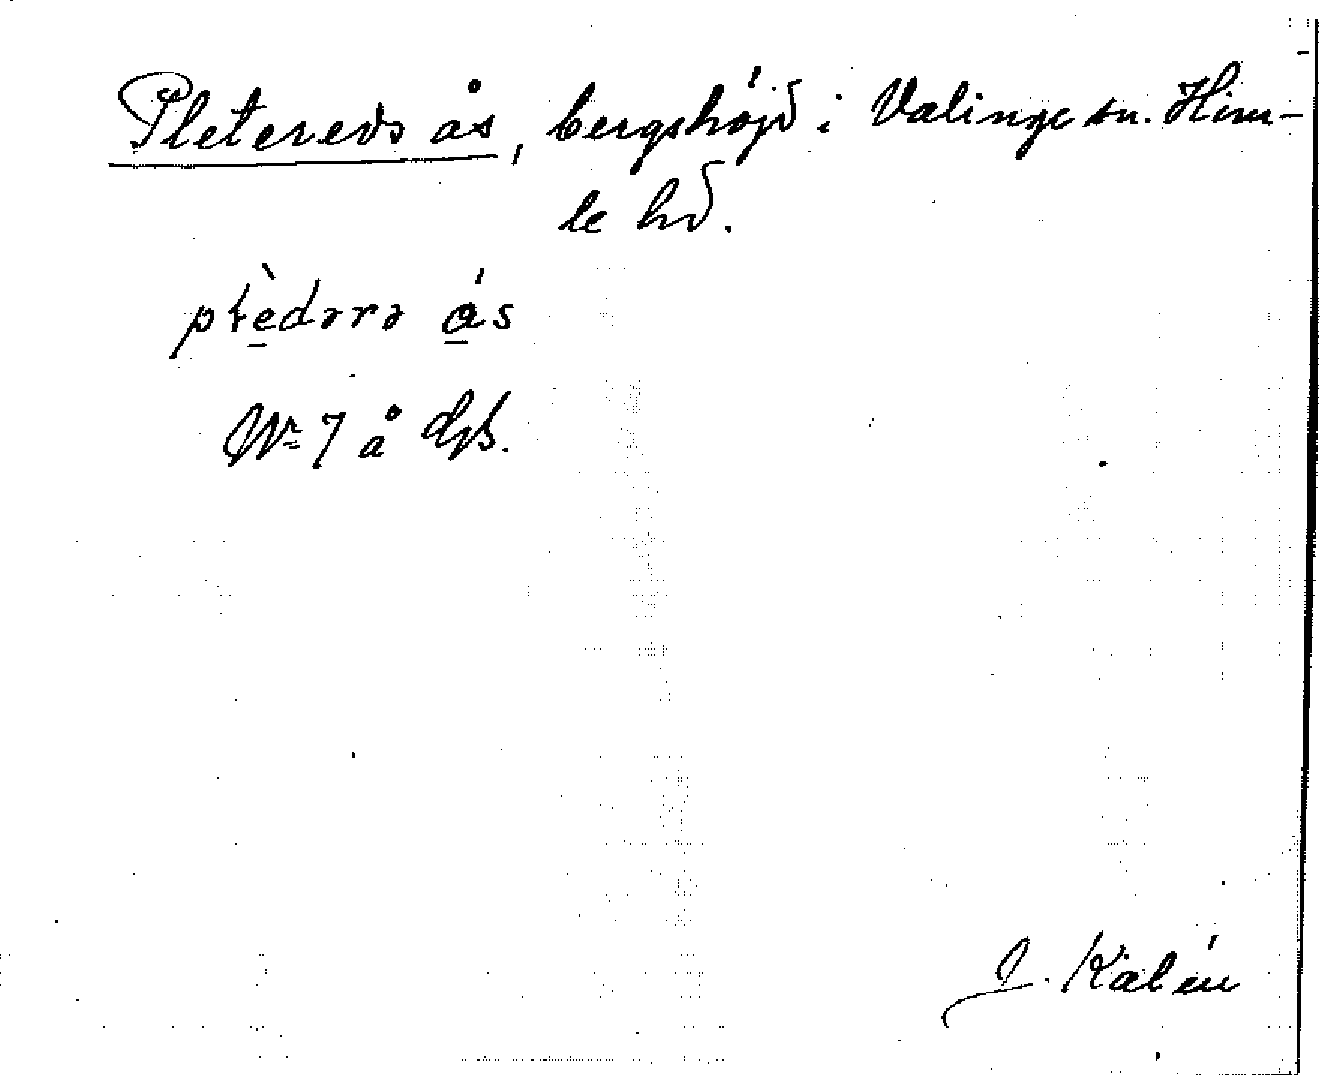 Pletereds ås, bergshöjd i Valinge sn. Him-
le hd.
plèdərə ás
Nr 7 å
J. Kalén